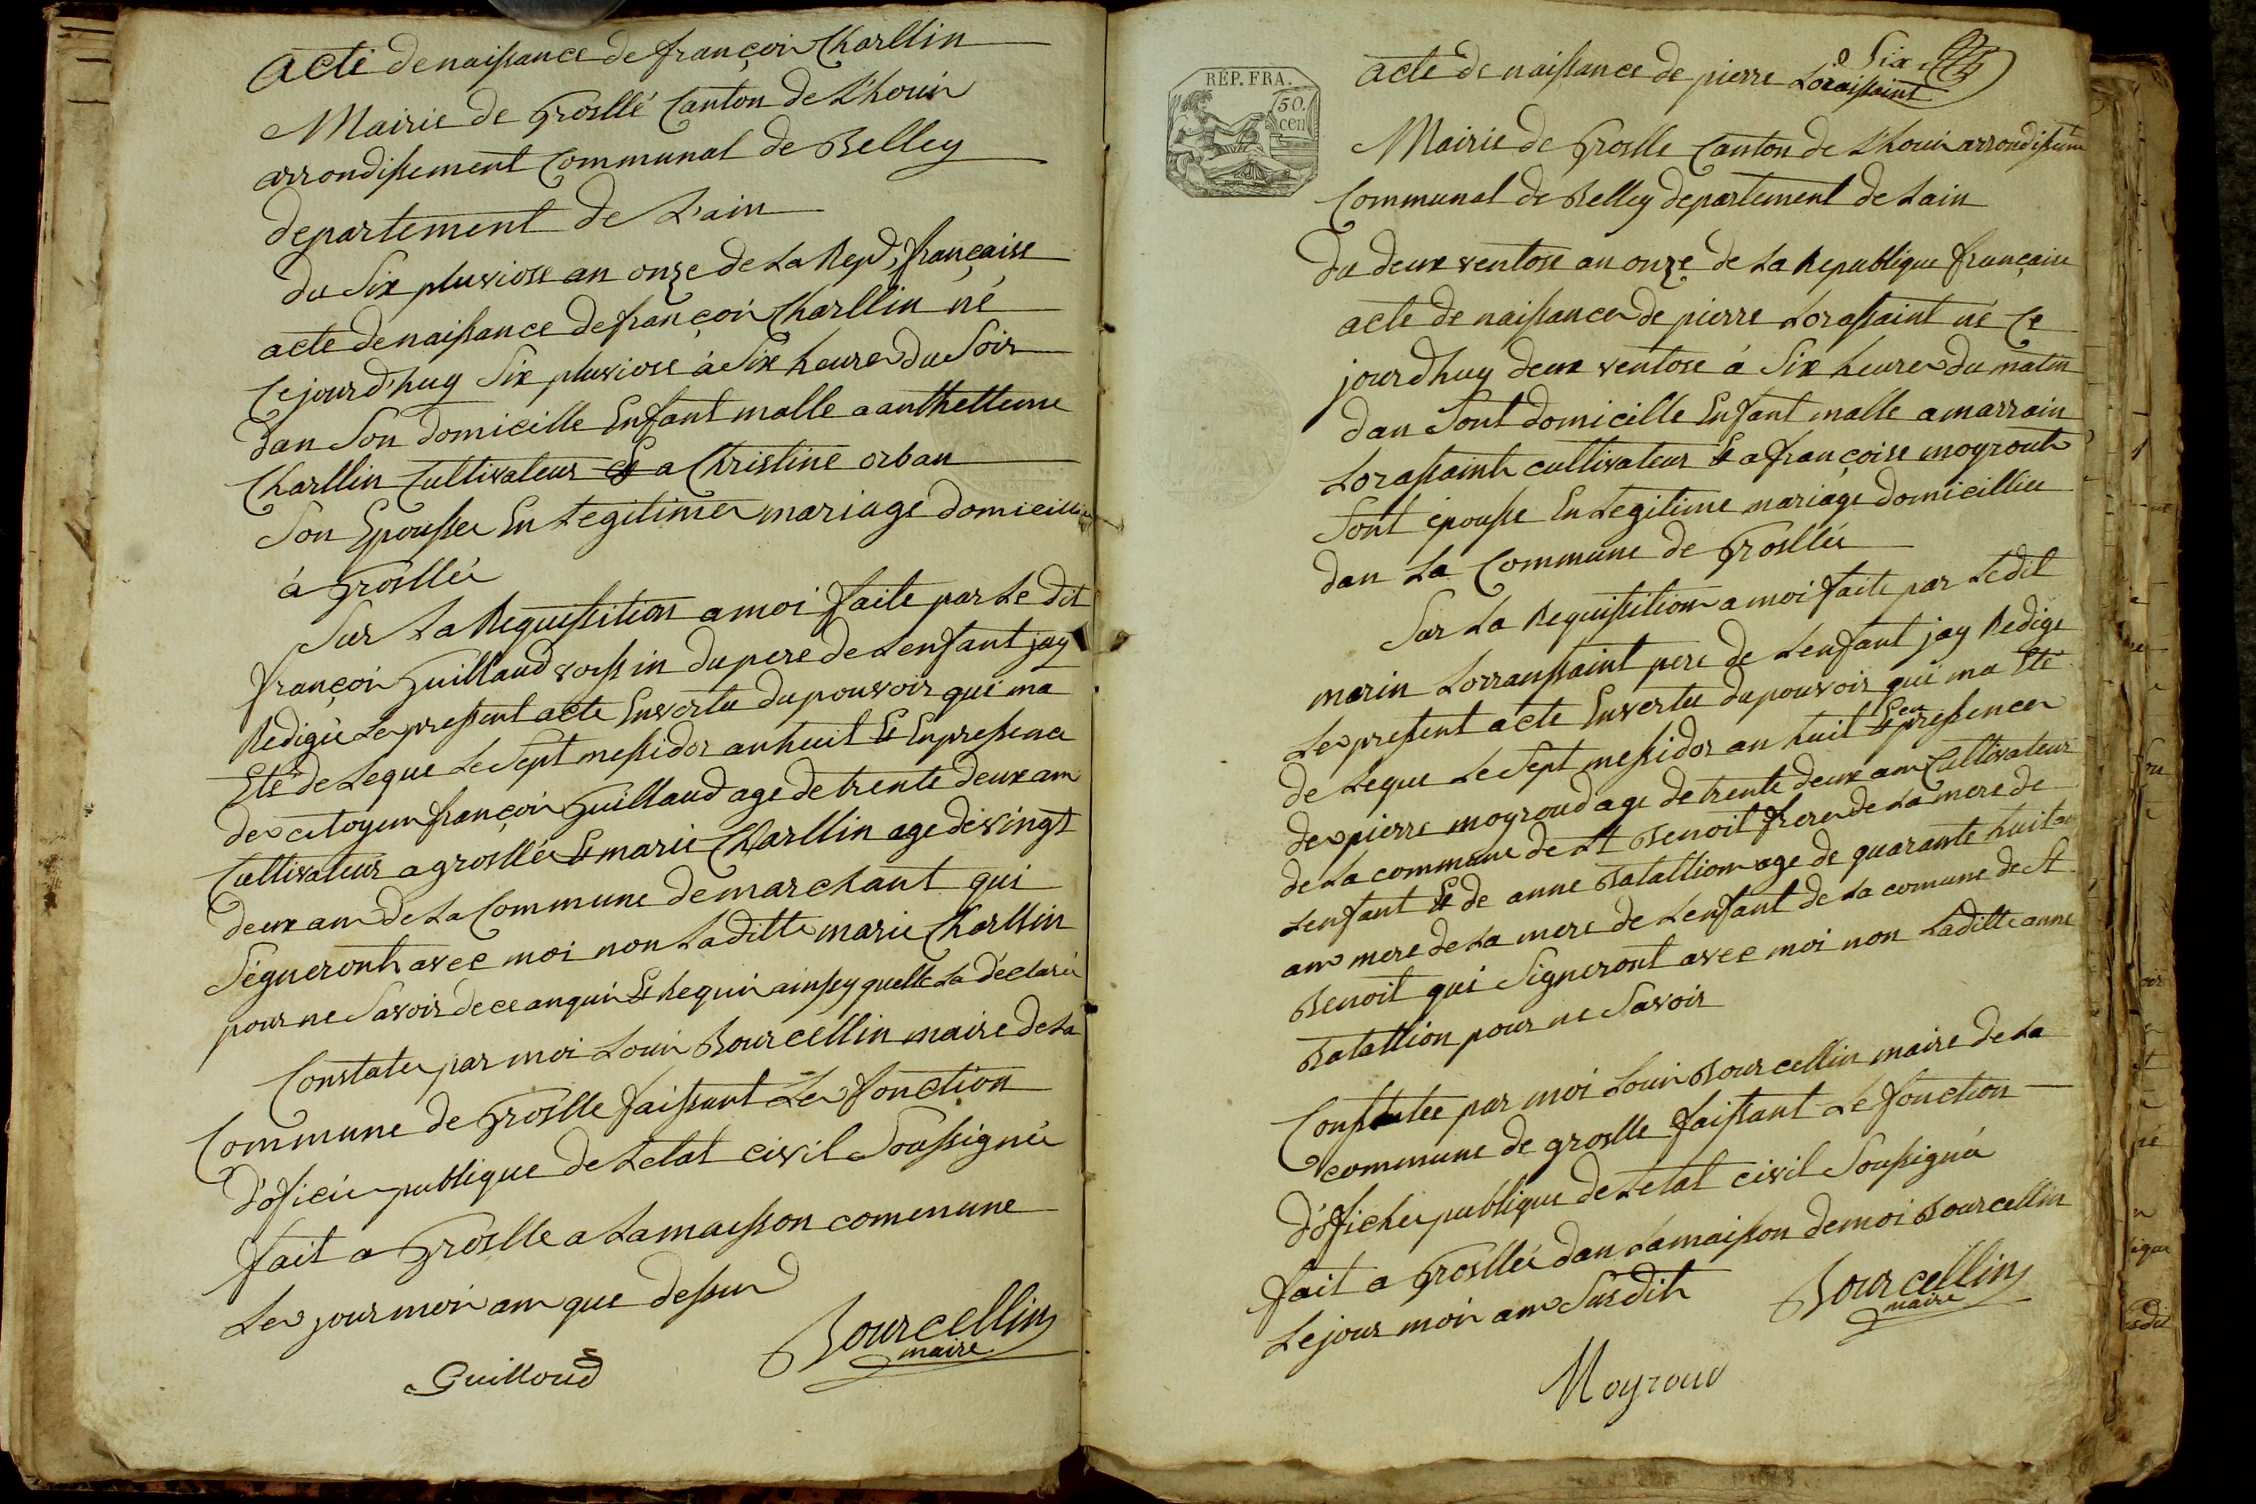 acte de naissance de françois Charllin
Mairie de Grosllé Canton de L'houis
arrondissement Communal de Belley
departement de L'ain
du Six pluviose an onze de La Rep. française
acte de naissance de françois Charllin né
Ce jourd'huy Six pluviose à Six heures du Soir
dan Son domicille Enfant malle a anthellme
Charllin Cultivateur Et a Christine orban
Son Epousse En Legitime mariage domicillié
à Groslleé
Sur La Requissition a moi faite par Le dit
françois Guillaud voissin du pere de Lenfant jay
Redigé Le pressent acte En vertu du pouvoir qui ma
Eté deLegue Le Sept messidor an huit Et En pressence
de citoyen françois Guillaud age de trente deux ans
Cultivateur a groslleé Et marie Charllin age de vingt
deux ans de La Commune de marchant qui
Signeront avec moi non Laditte marie Charllin
pour ne Savoir de ce anquis Et Requis ainssy quelle La déclaré
Constaté par moi Louis Bourcellin maire de La
Commune de Groslle faissant Les fonction
D'oficié publique de Letat civil Soussigné
fait a Groslle a La maisson commune
Les jour mois an que dessus
Bourcellin
maire
Guilloud
Six
RÉP. FRA.
50.
cen
acte de naissance de pierre Loraissaint
Mairie de Groslle Canton de L'houis arrondissem
Communal de Belley departement de Lain
du deux ventose an onze de La Republique française
acte de naissance de pierre Lorassaint né Ce
jourdhuy deux ventose à Six heures du matin
dan Sont domicille Enfant malle a marrain
Lorassaint cultivateur Et a françoise moyrout
Sont épousse En Legitime mariage domicilliée
dan La Commune de Groslleé
Sur La Requissition a moi faite par Ledit
marin Lorranssaint pere de Lenfant jay Redige
Le pressent acte En vertu du pouvoir qui ma Eté
de Legue Le Sept messidor an huit Et en pressence
de pierre moyroud age de trente deux ans Cultivateur
de La commune de St Benoit frere de La mere de
Lenfant Et de anne Batallion age de quarante huit
ans mere de La mere de Lenfant de La comune de St
Benoit qui Signeront avec moi non Laditte anne
Batallion pour ne Savoir
Constatée par moi Louis Bourcellin maire de La
commune de groslle faissant Le fonction
D'offichié publique de Letat civil Soussigné
fait a Groslleé dan La maisson de moi Bourcellin
Le jour mois an Susdit
Bourcellin
maire
Moyroud